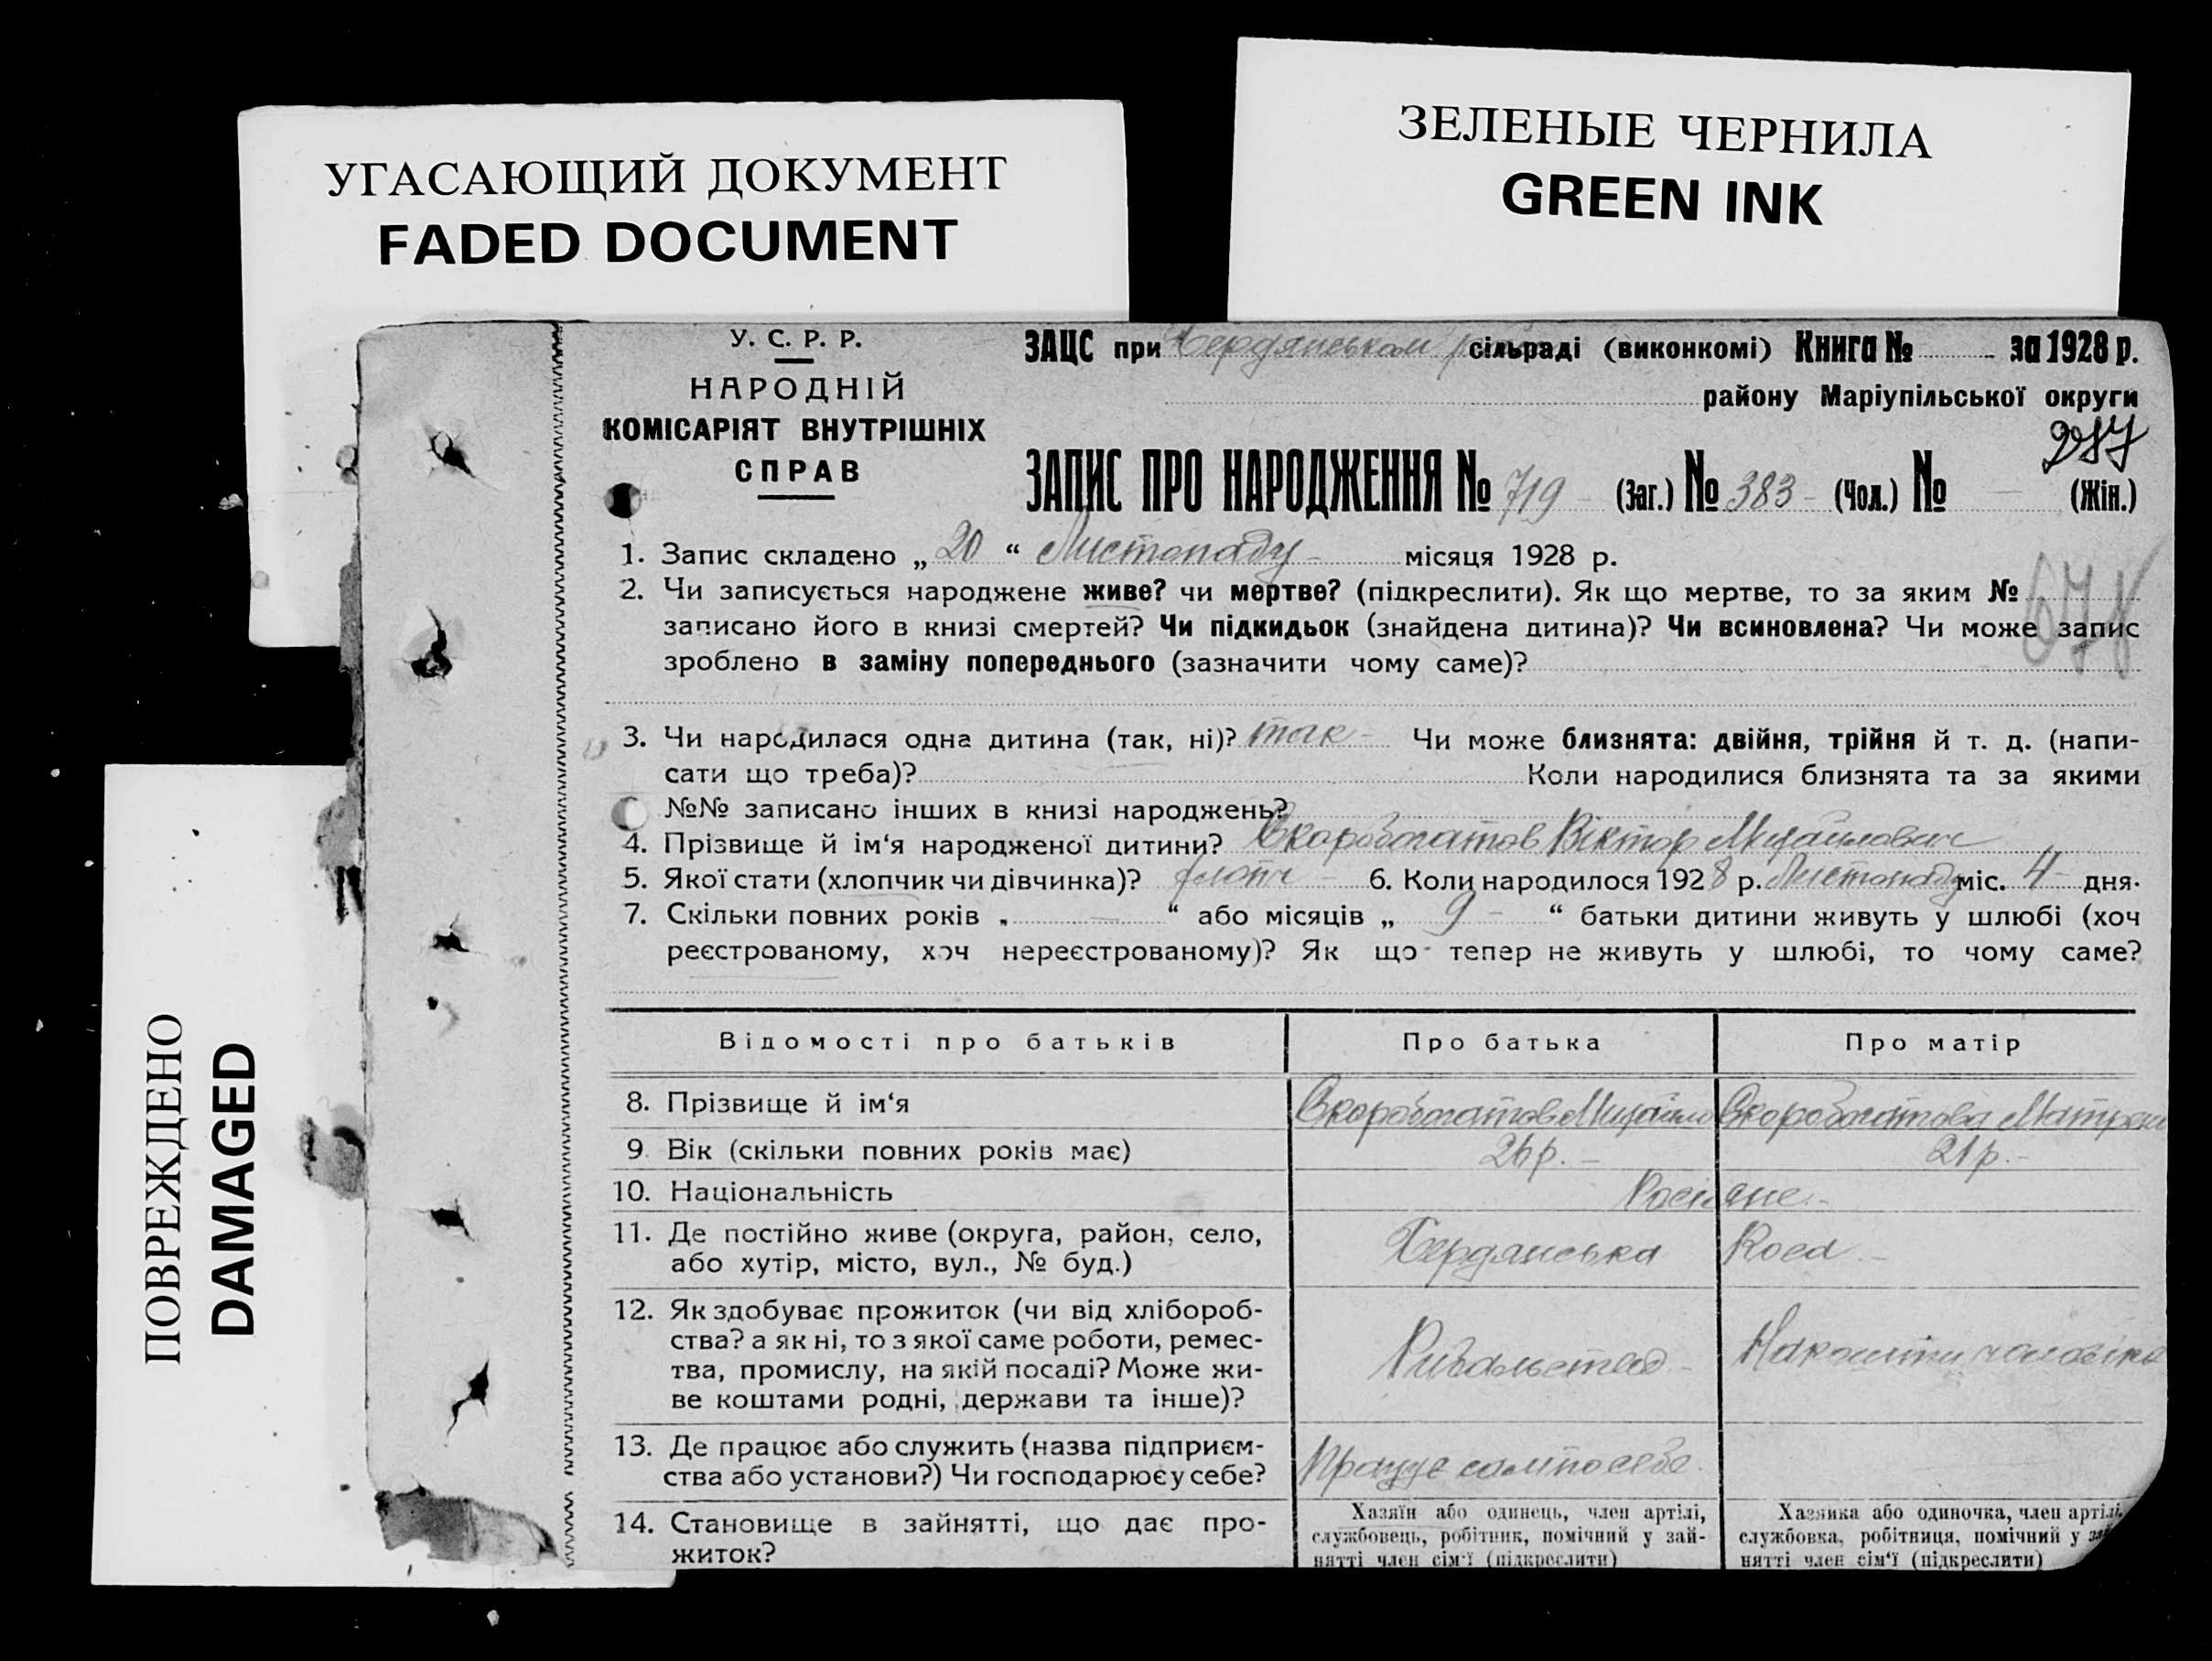 УГАСАЮЩИЙ ДОКУМЕНТ
FADED DOCUMENT
ЗЕЛЕНЫЕ ЧЕРНИЛА
GREEN INK
ПОВРЕЖДЕНО
DAMAGED
У. С. Р. Р.
НАРОДНІЙ
КОМІСАРІЯТ ВНУТРІШНІХ
СПРАВ
ЗАЦС при Бердянськом сільраді (виконкомі) Книга № за 1928 р.
району Маріупільської округи
287
ЗАПИС ПРО НАРОДЖЕННЯ № 719 (Заг.) № 383 - (Чол.) № — (Жін.)
1. Запис складено „ 20 “ Листопаду - місяця 1928 р.
2. Чи записується народжене живе? чи мертве? (підкреслити). Як що мертве, то за яким №
записано його в книзі смертей? Чи підкидьок (знайдена дитина)? Чи всиновлена? Чи може запис
зроблено в заміну попереднього (зазначити чому саме)?
3. Чи народилася одна дитина (так, ні)? так - Чи може близнята: двійня, трійня й т. д. (напи-
сати що треба)? Коли народилися близнята та за якими
№№ записано інших в книзі народжень?
4. Прізвище й ім‘я народженої дитини? Скоробогатов Віктор Михайлович
5. Якої стати (хлопчик чи дівчинка)? хлопч - 6. Коли народилося 1928 р. Листопаду міс. 4 - дня.
7. Скільки повних років „ — “ або місяців „ 9 - “ батьки дитини живуть у шлюбі (хоч
реєстрованому, хоч нереєстрованому)? Як що тепер не живуть у шлюбі, то чому саме?
Відомості про батьків Про батька Про матір
8. Прізвище й ім‘я Скоробогатов Михайло Скоробогатова Матрона
9. Вік (скільки повних років має) 26 р. - 21 р. -
10. Національність Росіяне -
11. Де постійно живе (округа, район, село,
або хутір, місто, вул., № буд.) Бердянська Коса -
12. Як здобуває прожиток (чи від хлібороб-
ства? а як ні, то з якої саме роботи, ремес-
тва, промислу, на якій посаді? Може жи-
ве коштами родні, держави та інше)? Рибальство - На кошти чоловіка
13. Де працює або служить (назва підприєм-
ства або установи?) Чи господарює у себе? Працує сам по себе.
14. Становище в зайнятті, що дає про-
житок?
Хазяїн або одинець, член артілі,
службовець, робітник, помічний у зай-
нятті член сім‘ї (підкреслити)
Хазяйка або одиночка, член артілі,
службовка, робітниця, помічний у зай
нятті член сім‘ї (підкреслити)